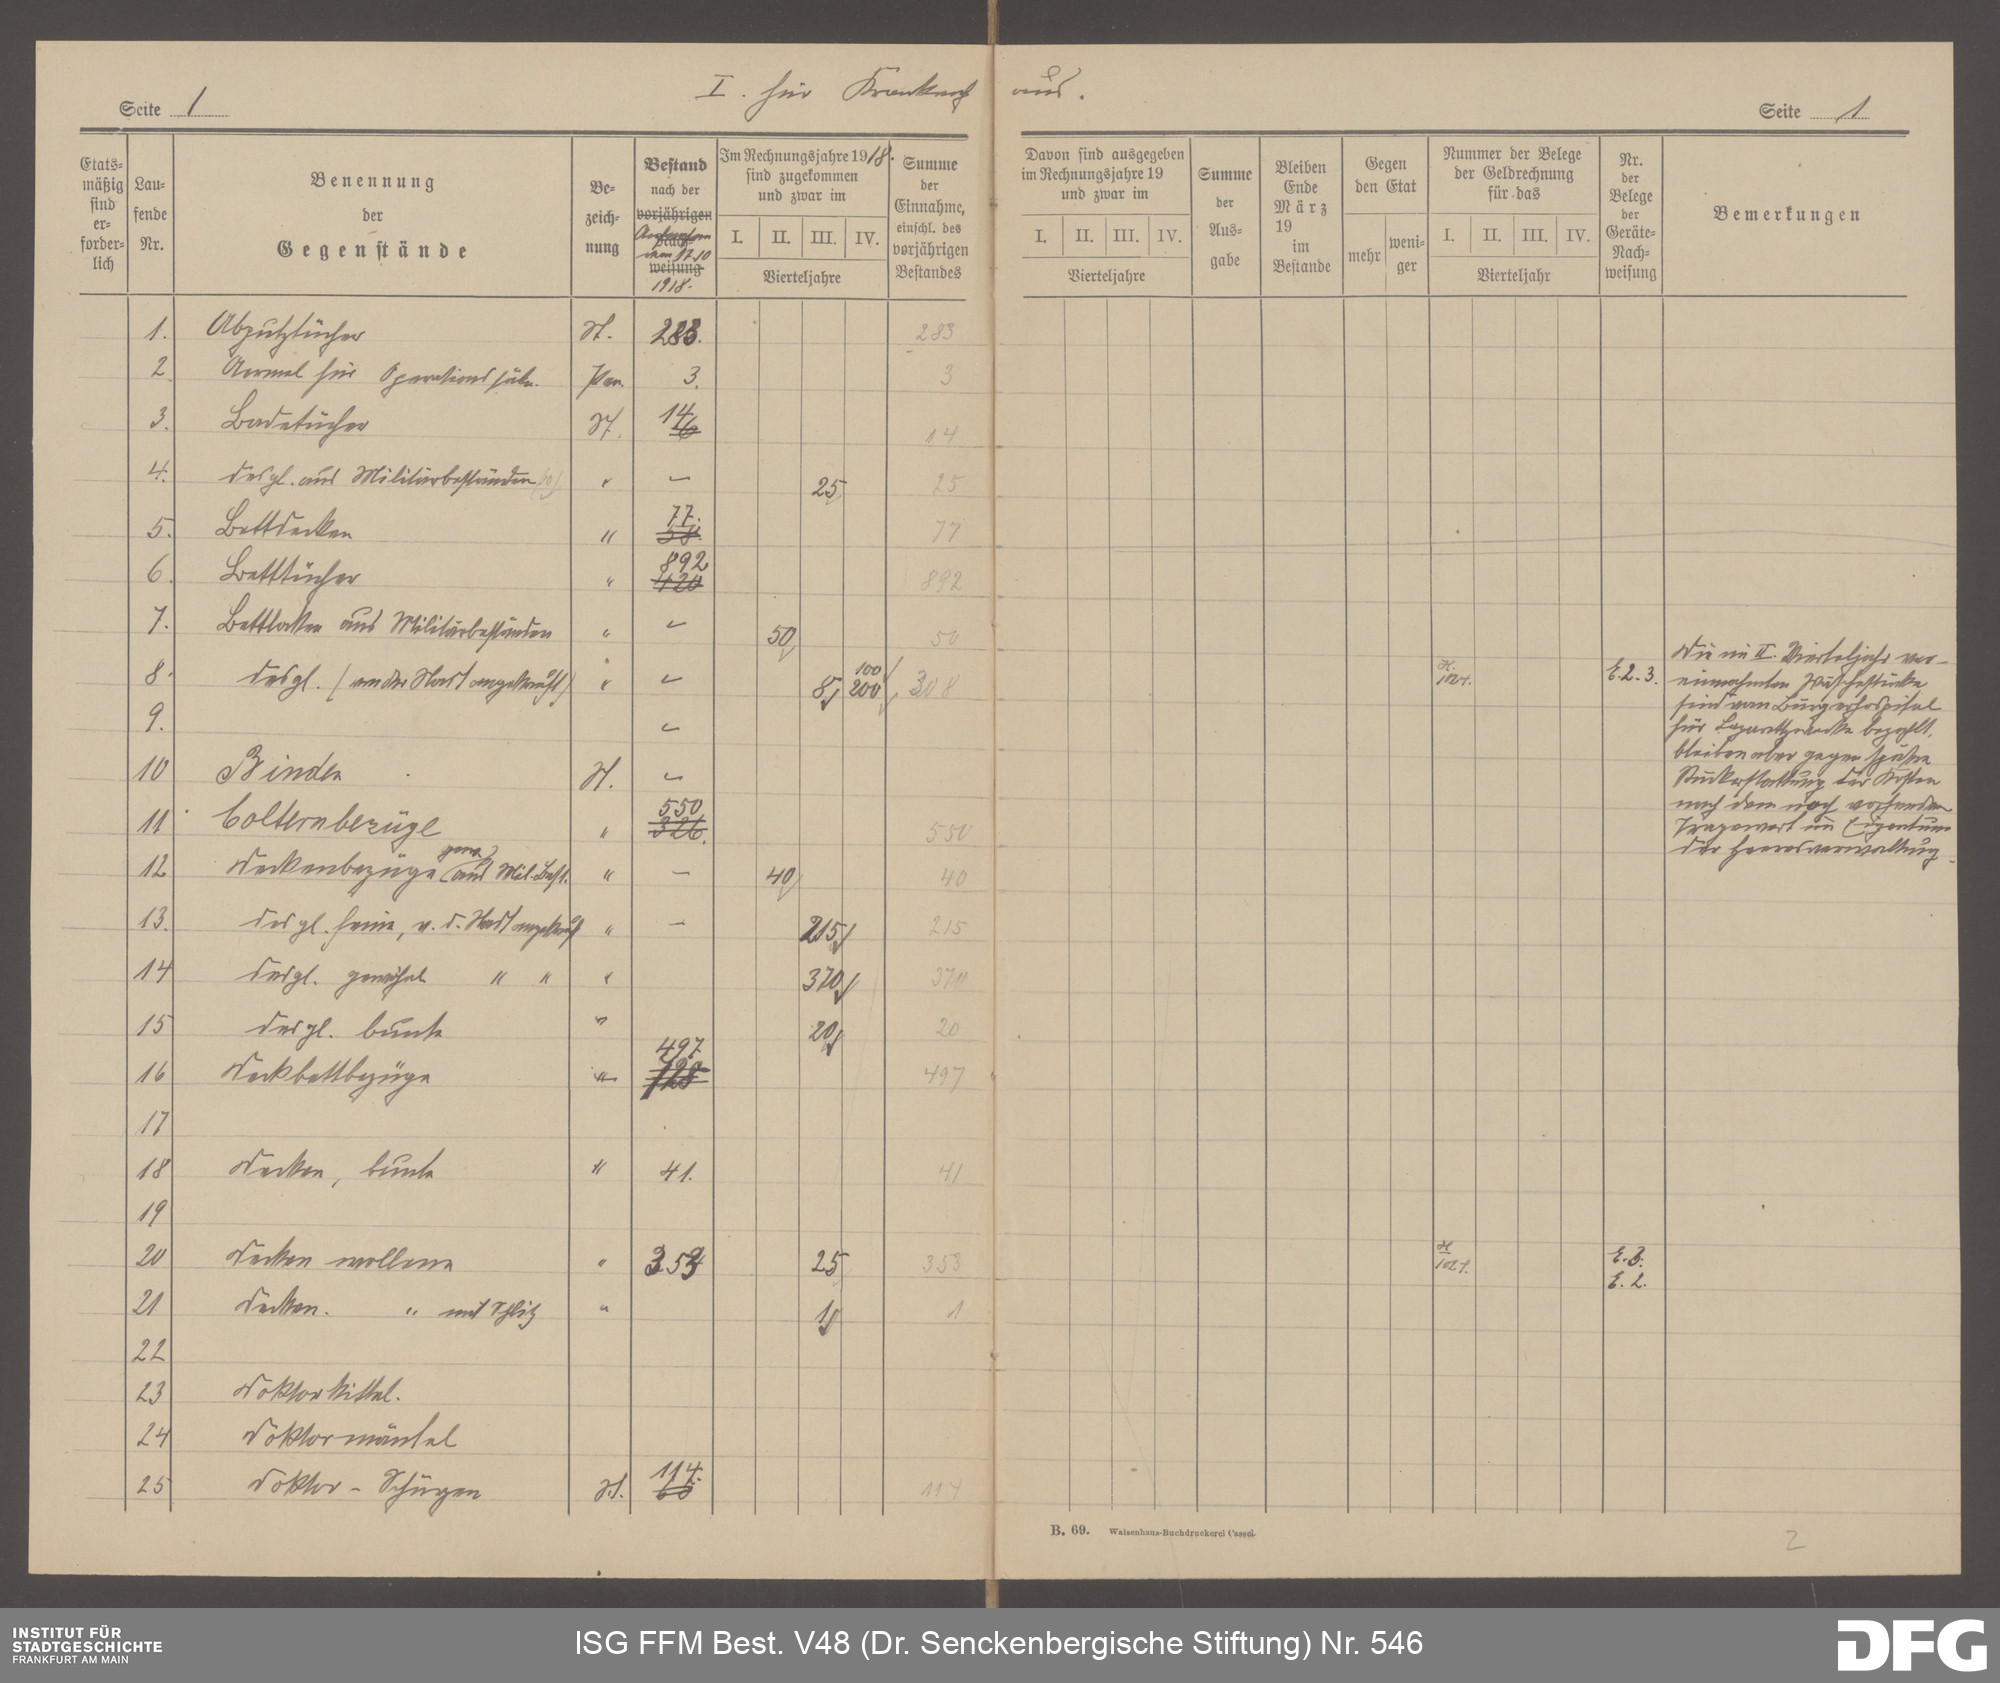 I. für Krankenh aus.
Seite 1
Seite 1
Etats-
mäßig
sind
er-
forder-
lich
Lau-
fende
Nr.
Benennung
der
Gegenstände
Be-
zeich-
nung
Bestand
nach der
vorjährigen
Nach-
vom 17.10
weisung
1918.
Im Rechnungsjahre 1918.
sind zugekommen
und zwar im
I. II. III. IV.
Vierteljahre
Summe
der
Einnahme,
einschl. des
vorjährigen
Bestandes
Davon sind ausgegeben
im Rechnungsjahre 19
und zwar im
I. II. III. IV.
Vierteljahre
Summe
der
Aus-
gabe
Bleiben
Ende
März
19
im
Bestande
Gegen
den Etat
mehr
weni-
ger
Nummer der Belege
der Geldrechnung
für das
I. II. III. IV.
Vierteljahr
Nr.
der
Belege
der
Geräte-
Nach-
weisung
Bemerkungen
1. Abputztücher St. 283. 283
2 Aermel für Operationssäle. Paar. 3. 3
3. Badetücher St. 14 14
4. desgl. aus Militärbeständen " – 25 25
5. Bettdecken " 77. 58. 77
6. Betttücher " 892 420 892
7. Bettlaken aus Militärbeständen " – 50 50
8. desgl. (von der Stadt angekauft) " – 8 100 200 308 St. 1021. E.2.3.
9. –
10 Binden St. –
11 Colternbezüge " 550 326. 550
12 Deckenbezüge gew. aus Mil. Best. " – 40 40
13. desgl. feine, v. d. Stadt angekauft " – 215 215
14 desgl. gewöhnl. " " " 370 370
15 desgl. bunte " 20 20
16 Deckbettbezüge " 497 128 497
17
18 Decken, bunte " 41. 41
19
20 Decken wollene " 353 25 353 St. 1021. E.3.
E.2.
21 Decken. " mit Schlitz " 1 1
22
23 Doktorkittel.
24 Doktormäntel
25 Doktor-Schürzen St. 114. 65 117
Die im II. Vierteljahr ver-
einnahmten Wäschestücke
sind vom Bürgerhospital
für Lazarettzwecke bezahlt,
bleiben aber gegen spätere
Rückerstattung der Kosten
nach dem noch vorhandenen
Tragewert im Eigentum
der Heeresverwaltung.
B. 69. Waisenhaus-Buchdruckerei Cassel.
2
INSTITUT FÜR
STADTGESCHICHTE
FRANKFURT AM MAIN
ISG FFM Best. V48 (Dr. Senckenbergische Stiftung) Nr. 546
DFG